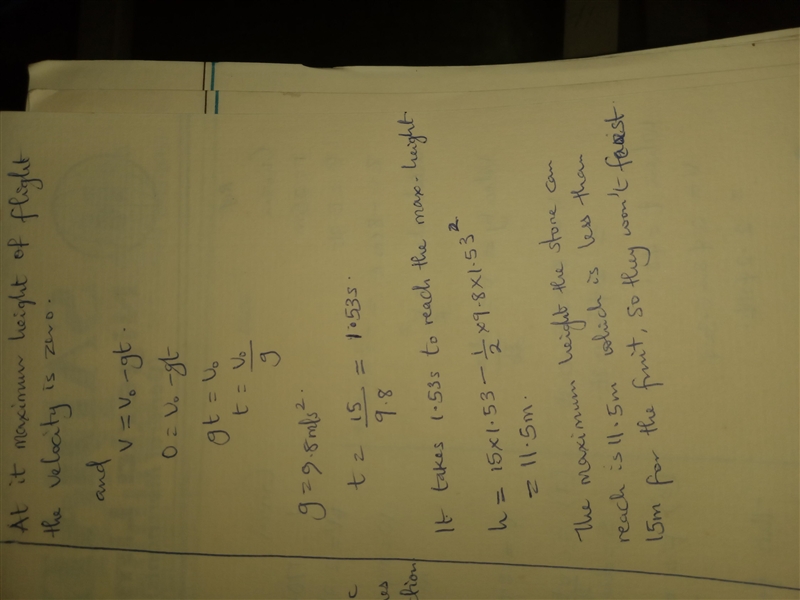 At it maximum height of flight
the velocity is zero.
and
V = V₀ - gt.
0 = V₀ - gt
gt = V₀
t = V₀/g
g = 9.8m/s².
t = 15/9.8 = 1.53s.
It takes 1.53s to reach the max-height.
h = 15×1.53 - 1/2 ×9.8×1.53²
= 11.5m.
The maximum height the stone can
reach is 11.5m which is less than
15m for the fruit, so they won't
c
es
ction